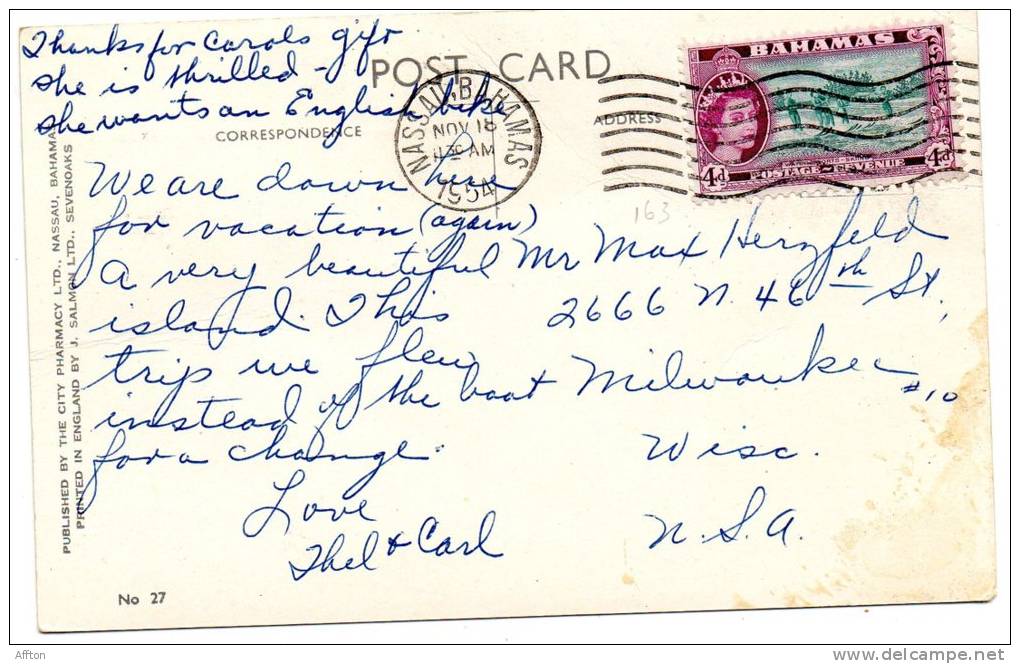 Thanks for Carols gift
she is thrilled -
she wants an English bike
POST CARD
CORRESPONDENCE
ADDRESS
BAHAMAS
4d
POSTAGE REVENUE
4d
NASSAU, BAHAMAS
NOV 18
AM
1954
163
We are down here
for vacation (again)
A very beautiful
island. This
trip we flew
instead of the boat
for a change.
Love
Thel & Carl
Mr Max Herzfeld
2666 N. 46th St.
Milwaukee
#10
Wisc.
U.S.A.
PUBLISHED BY THE CITY PHARMACY LTD., NASSAU, BAHAMAS
PRINTED IN ENGLAND BY J. SALMON LTD., SEVENOAKS
No 27
Affton
delcampe.net